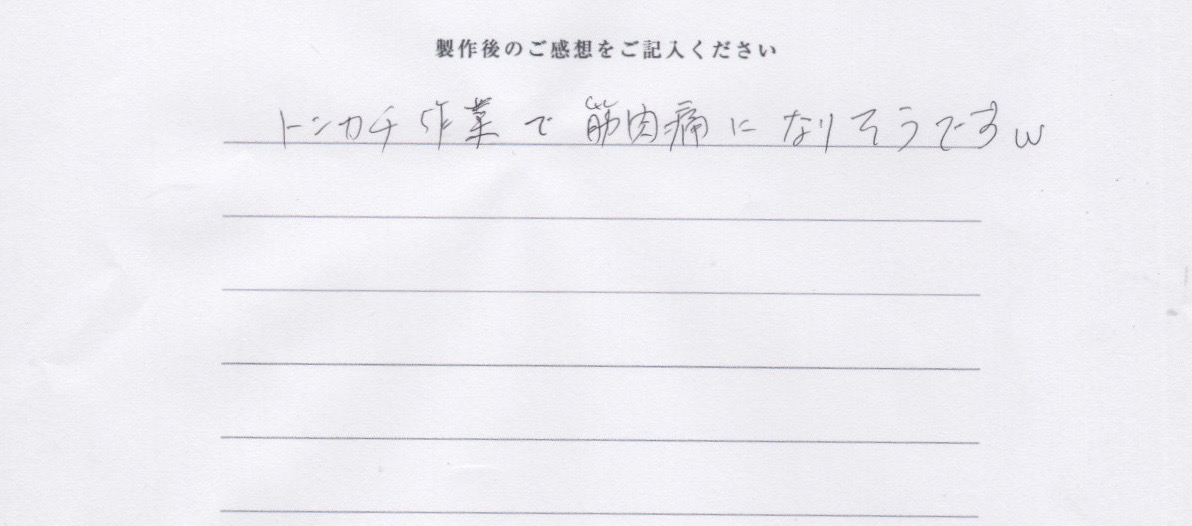 製作後のご感想をご記入ください
トンカチ作業で筋肉痛になりそうですw